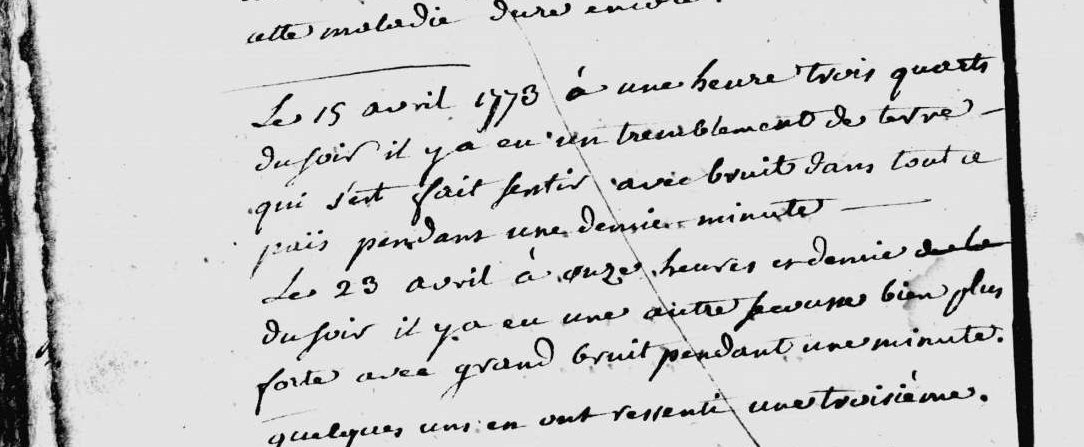 cette maladie dure encore.
Le 15 avril 1773 à une heure trois quarts
du soir il y a eu un tremblement de terre
qui s'est fait sentir avec bruit dans tout ce
païs pendant une demie minute
Le 23 avril à onze heures et demie de la
du soir il y a eu une autre secousse bien plus
forte avec grand bruit pendant une minute.
quelques uns en ont ressenti une troisiéme.